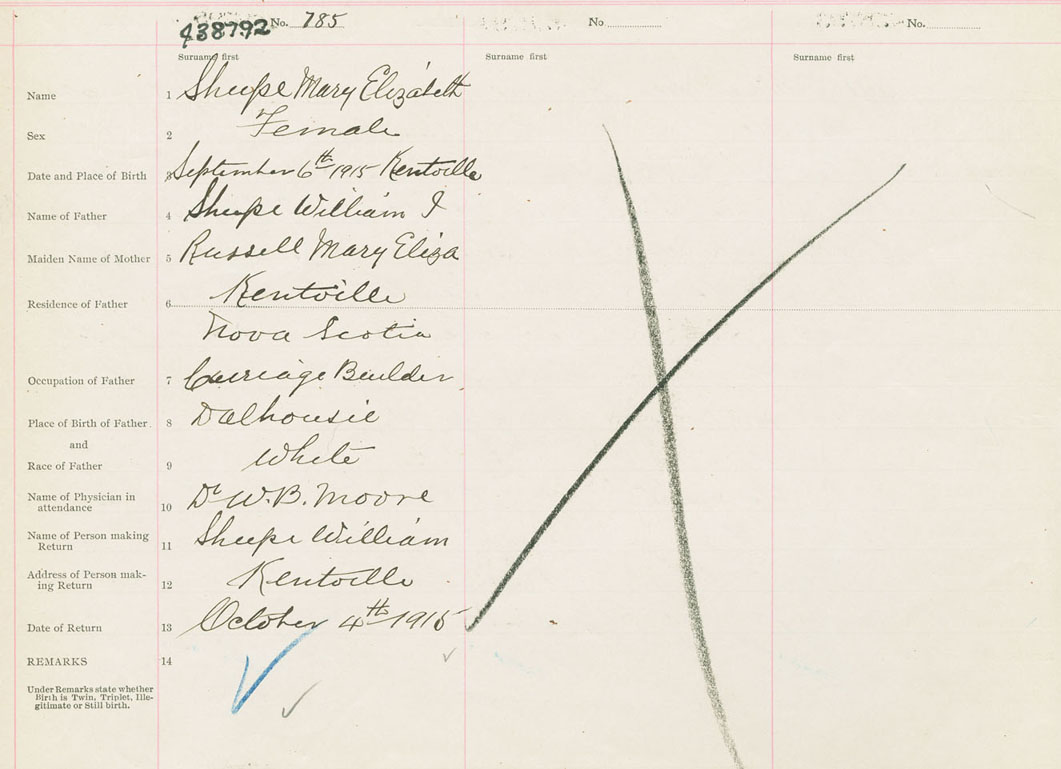 438792 No. 785 No No.
Surname first Surname first Surname first
Name 1 Mary Elizabeth
Sex 2 Female
Date and Place of Birth 3 September 6th 1915 Kentville
Name of Father 4 William
Maiden Name of Mother 5 Russell Mary Eliza
Residence of Father 6 Kentville
Nova Scotia
Occupation of Father 7 Carriage Builder
Place of Birth of Father 8 Dalhousie
and
Race of Father 9 White
Name of Physician in
attendance 10 Dr W. B. Moore
Name of Person making
Return 11 William
Address of Person mak-
ing Return 12 Kentville
Date of Return 13 October 4th 1915
REMARKS 14
Under Remarks state whether
Birth is Twin, Triplet, Ille-
gitimate or Still birth.